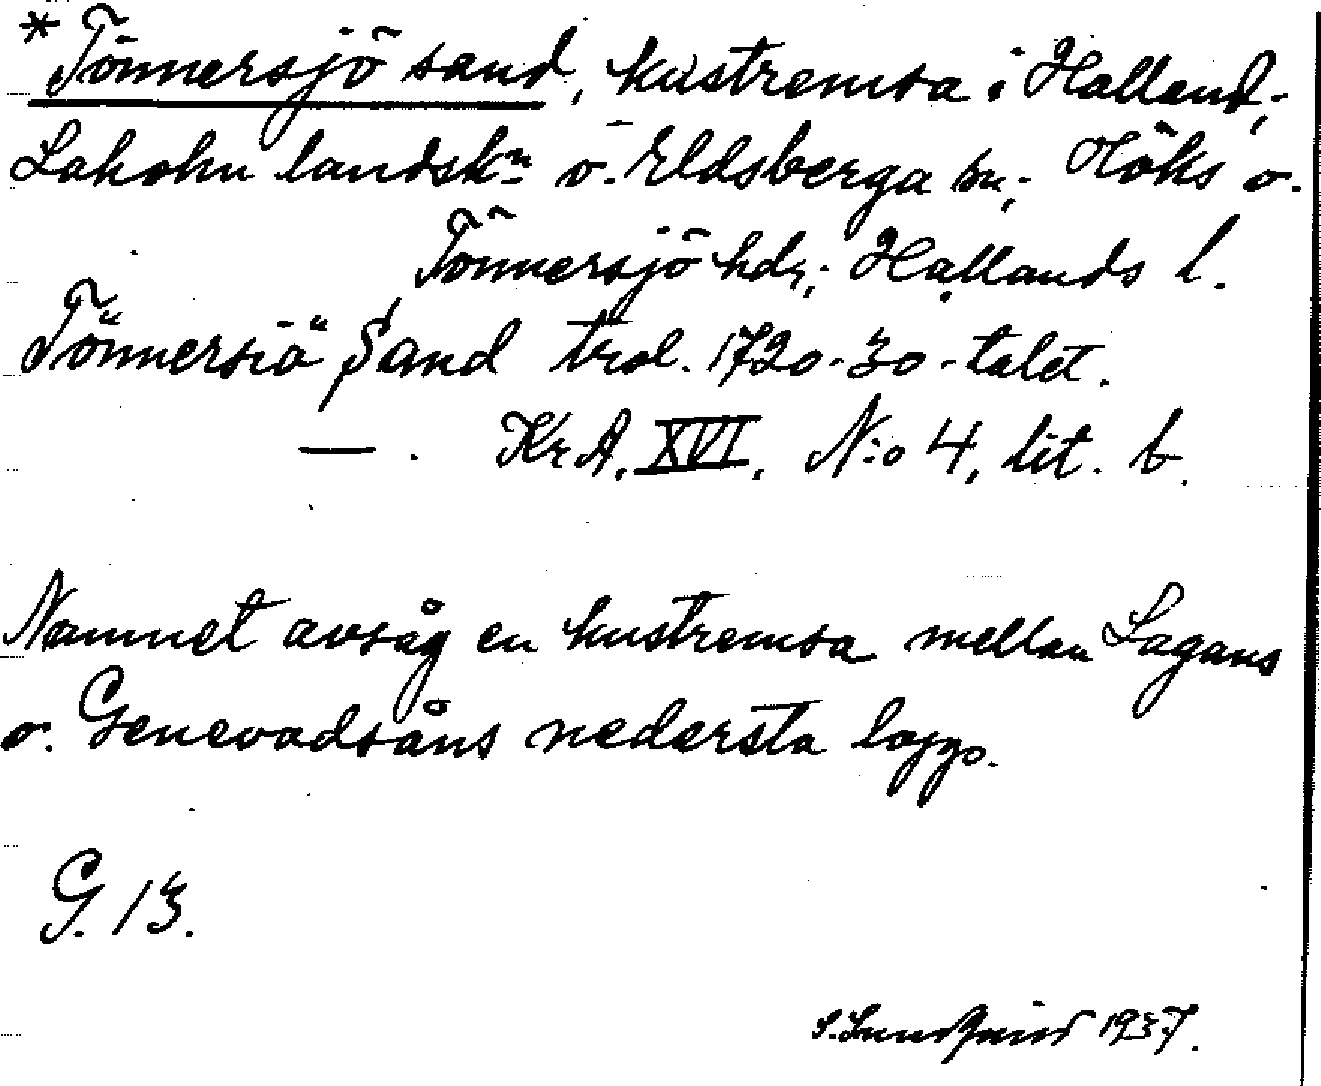 *Tönnersjö sand, kustremsa i Halland;
Laholm landskn o. Eldsberga sn; Höks o.
Tönnersjö hdr; Hallands l.
Tönnersiö Sand trol. 1720-30-talet.
— . KrA, XVI, N:o 4, lit. b.
Namnet avsåg en kustremsa mellan Lagans
o. Genevadsåns nedersta lopp.
G. 13.
S. Lundquist 1937.